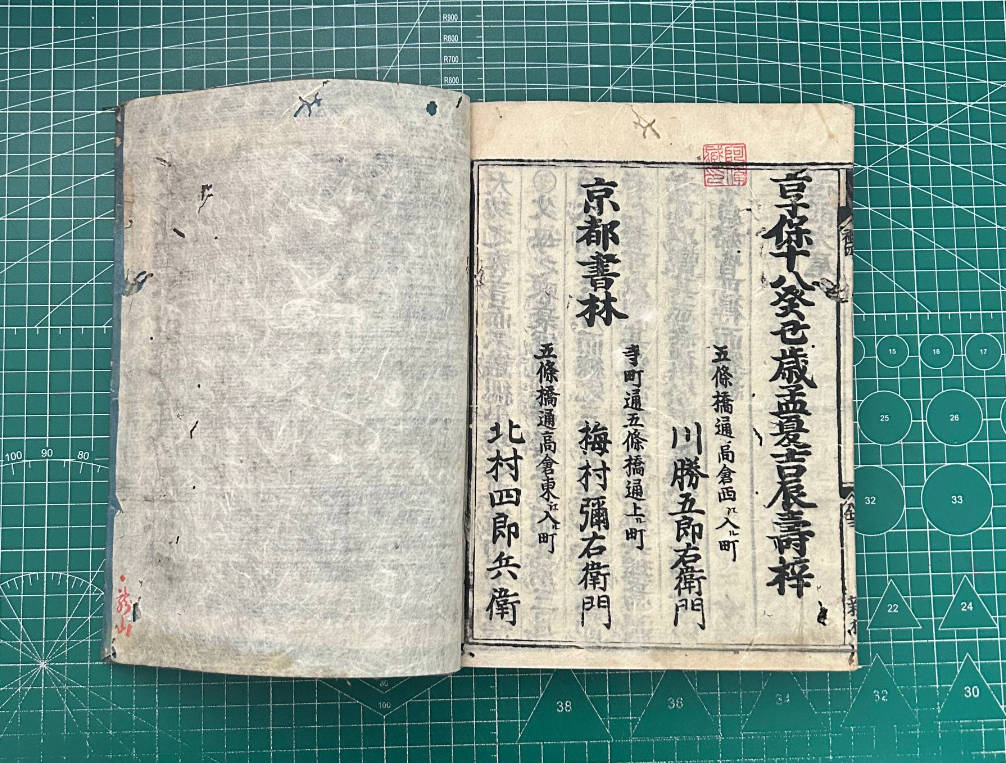 享保十八癸丑歳孟夏吉辰壽梓
五條橋通高倉西江入ル町
川勝五郎右衛門
寺町通五條橋通上ル町
京都書林
梅村彌右衛門
五條橋通高倉東江入ル町
北村四郎兵衛
秀山
R900
R800
R700
R600
100 90 80
15 16 17
25 26
32 33
22 24
38 36 34 32 30
100